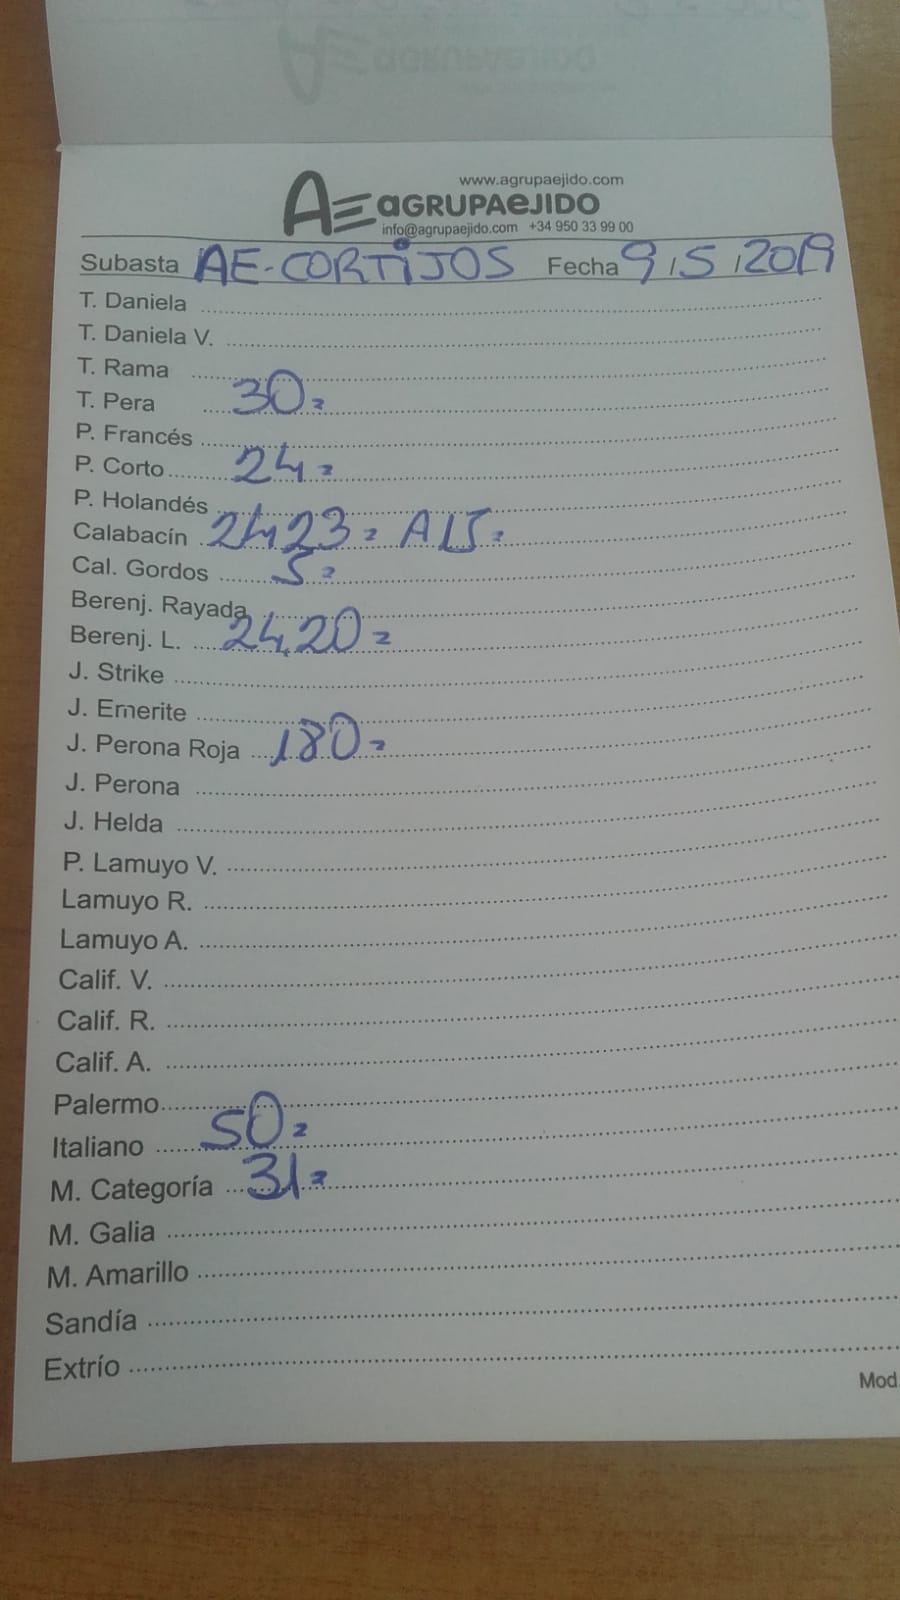 www.agrupaejido.com
AE aGRUPAeJIDO
info@agrupaejido.com +34 950 33 99 00
Subasta AE-CORTIJOS Fecha 9/5/2019
T. Daniela
T. Daniela V.
T. Rama
T. Pera 30=
P. Francés
P. Corto 24=
P. Holandés
Calabacín 24,23= A 15=
Cal. Gordos 5=
Berenj. Rayada
Berenj. L. 24,20=
J. Strike
J. Emerite
J. Perona Roja 180=
J. Perona
J. Helda
P. Lamuyo V.
Lamuyo R.
Lamuyo A.
Calif. V.
Calif. R.
Calif. A.
Palermo
Italiano 50=
M. Categoría 31=
M. Galia
M. Amarillo
Sandía
Extrío
Mod.